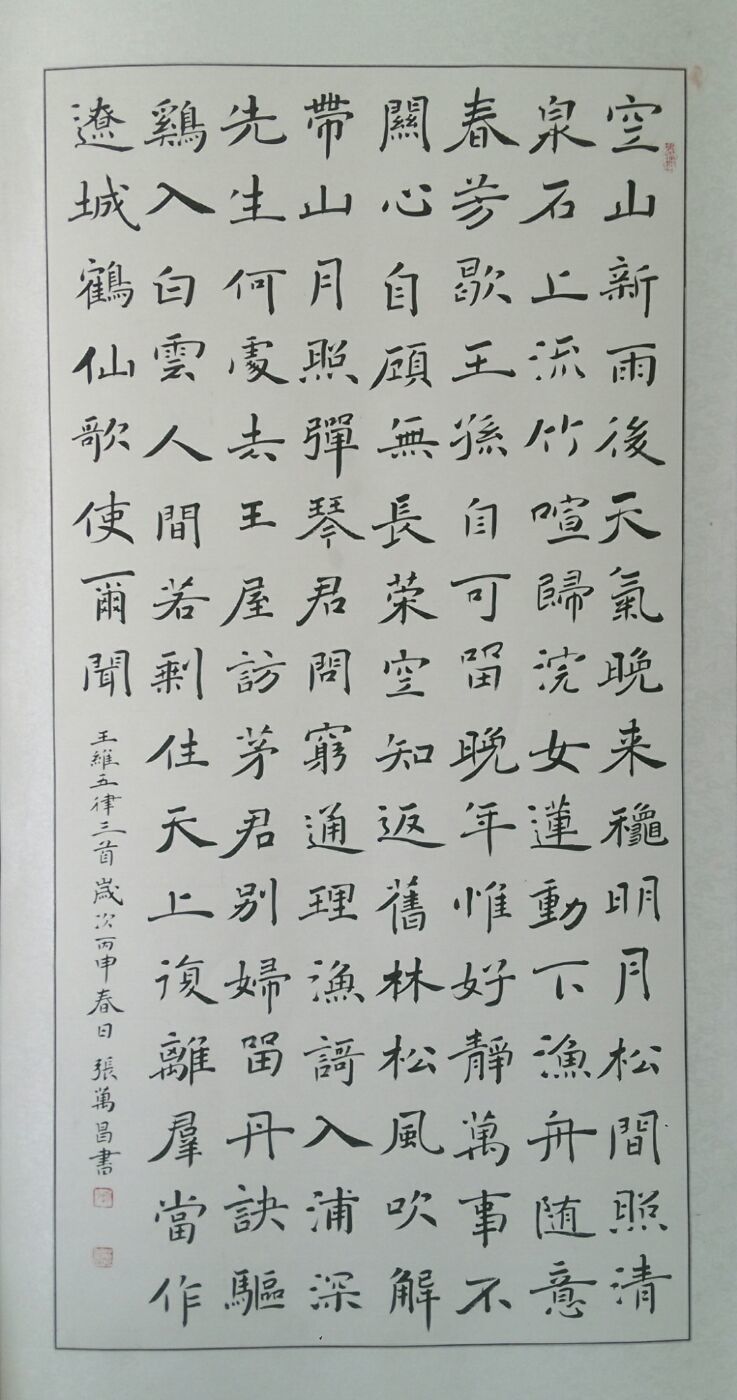 空山新雨後天氣晚来龝明月松間照清
泉石上流竹喧歸浣女蓮動下漁舟随意
春芳歇王孫自可留晚年惟好靜萬事不
關心自顧無長榮空知返舊林松風吹解
帶山月照彈琴君問窮通理漁謌入浦深
先生何處去王屋訪茅君別婦留丹訣驅
鷄入白雲人間若剩住天上復離羣當作
遼城鶴仙歌使爾聞
王維五律三首歲次丙申春日張萬昌書